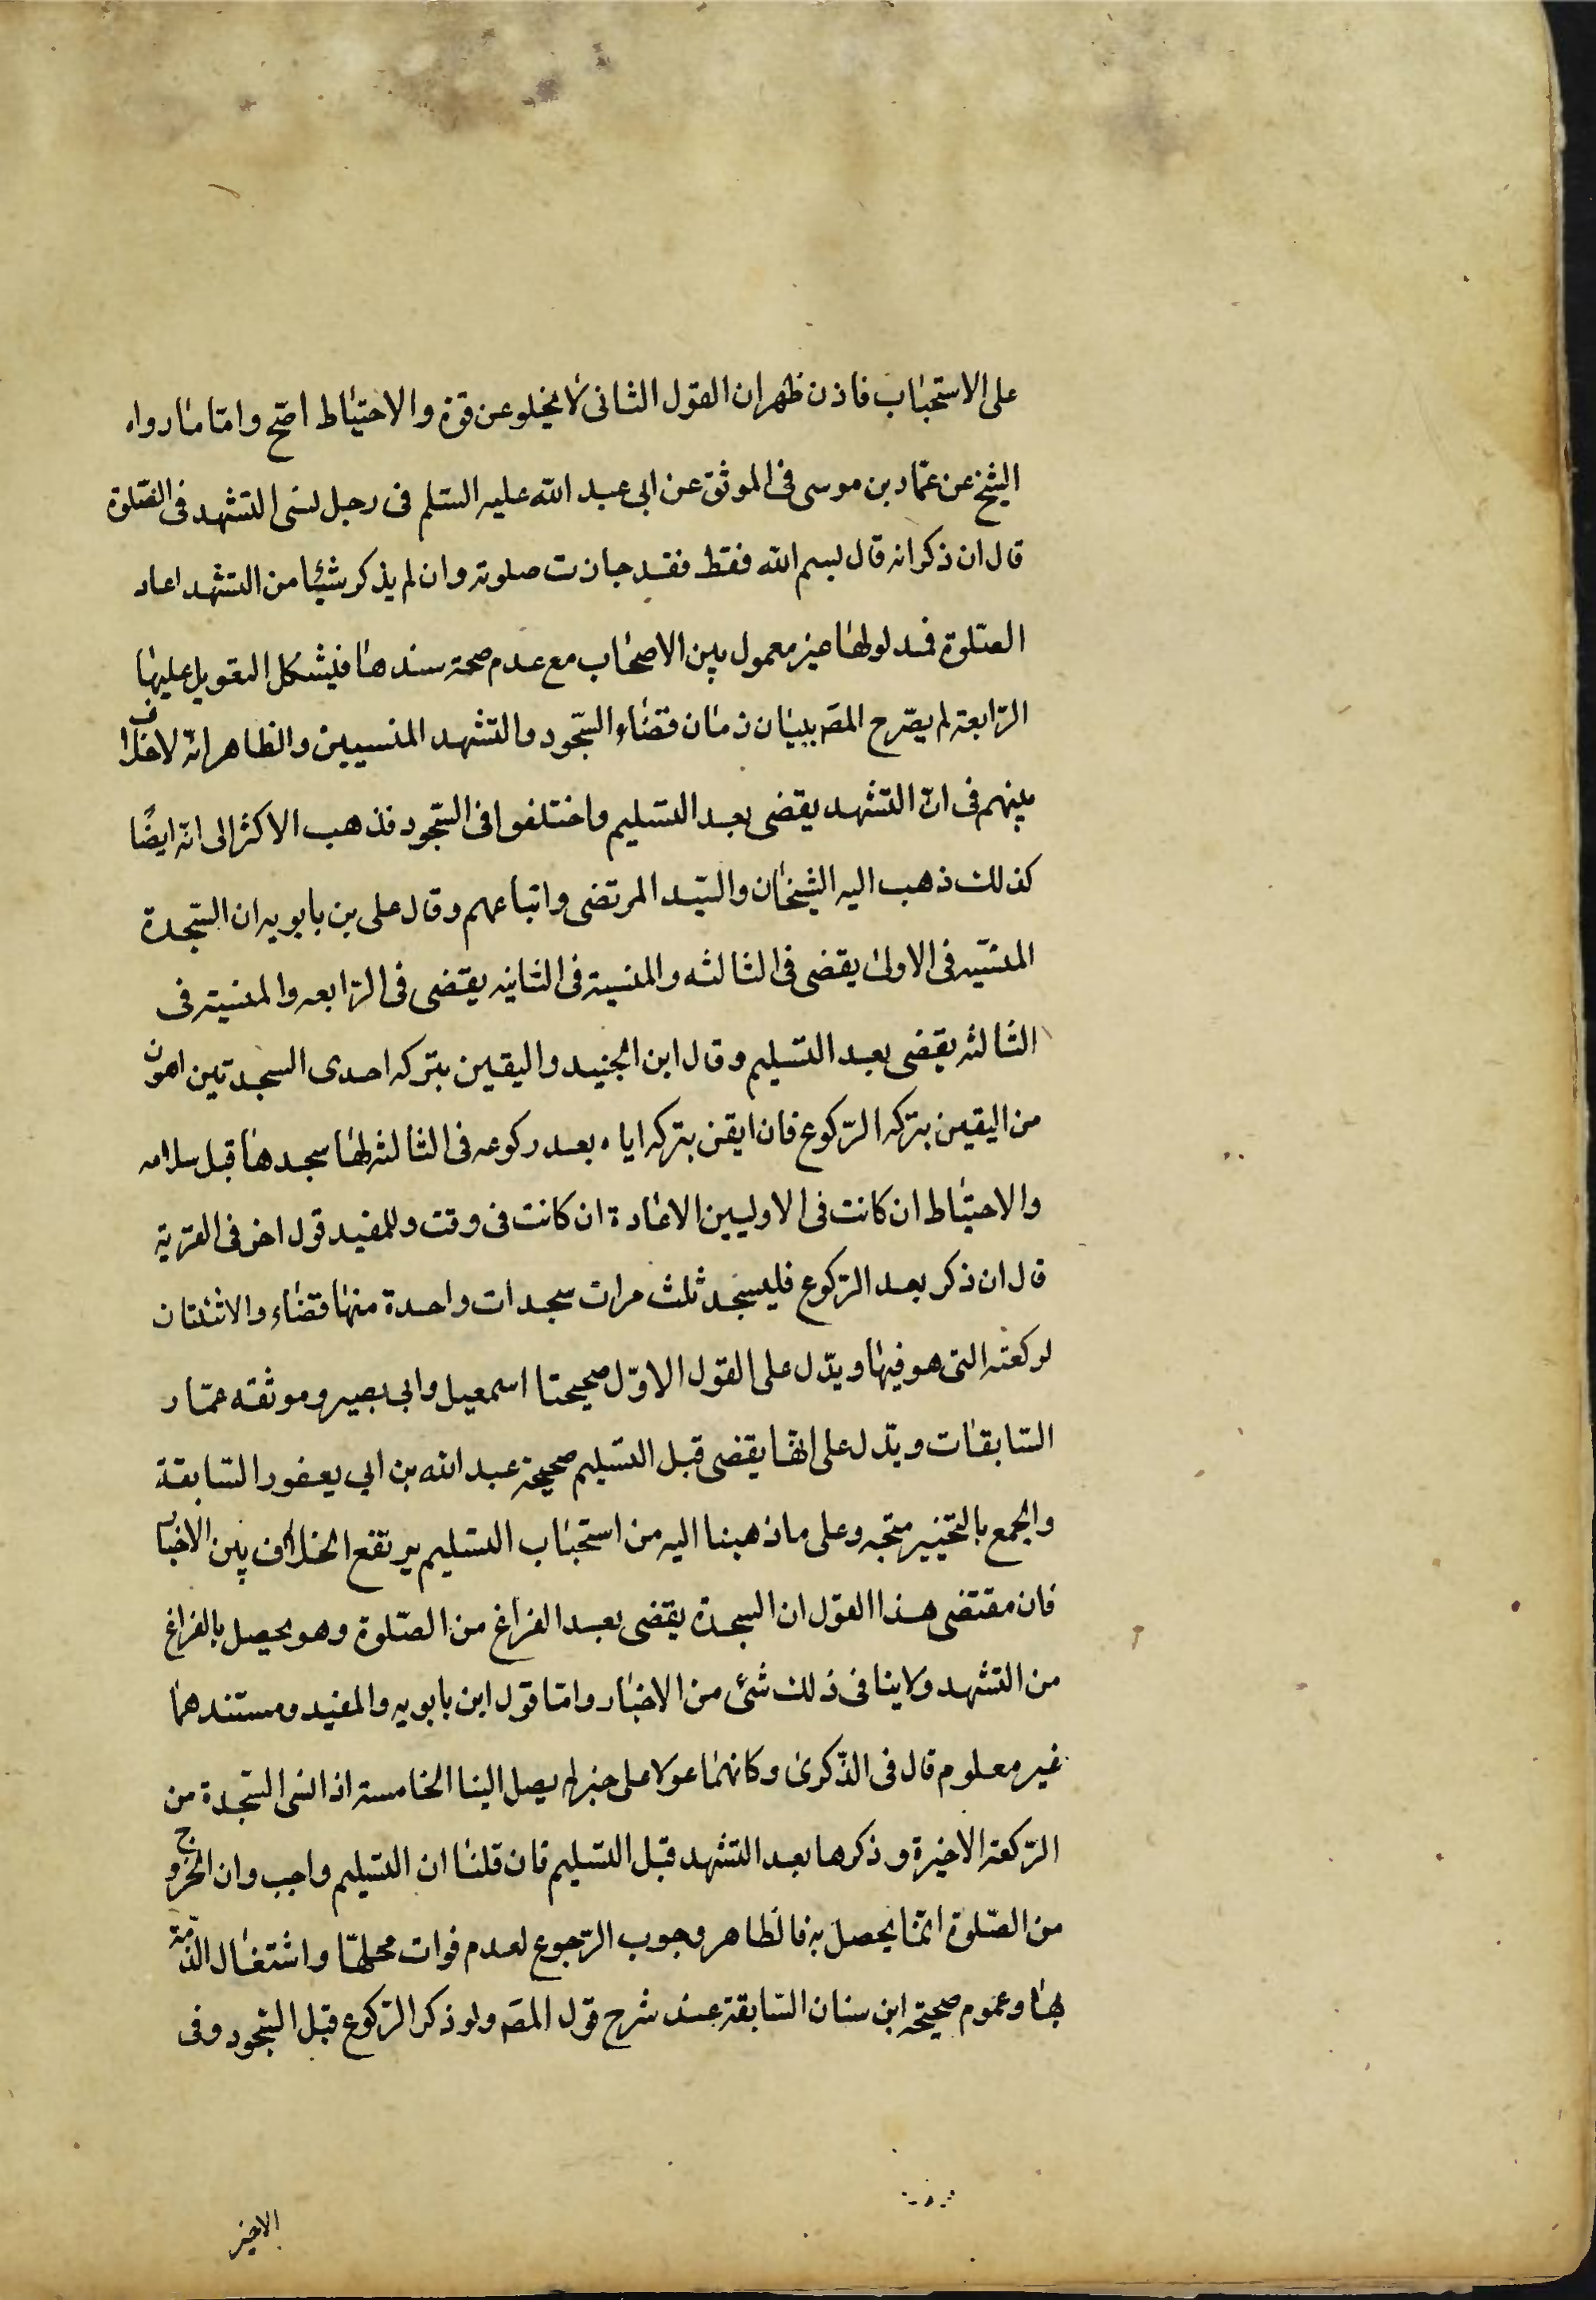 على الاستحباب فاذن ظهر ان القول الثانى لا يخلو عن قوة والاحتياط اصح واما ما رواه
الشيخ عن عمار بن موسى فى الموثق عن ابى عبد الله عليه السلم فى رجل نسى التشهد فى الصلوة
قال ان ذكر انه قال بسم الله فقط فقد جازت صلوته وان لم يذكر شيئا من التشهد اعاد
الصلوة فمدلولها غير معمول بين الاصحاب مع عدم صحة سندها فيشكل التعويل عليها
الرابعة لم يصرح المصه ببيان زمان قضاء السجود والتشهد المنسيين والظاهر انه لا خلاف
بينهم فى ان التشهد يقضى بعد التسليم واختلفوا فى السجود فذهب الاكثر الى انه ايضا
كذلك ذهب اليه الشيخان والسيد المرتضى واتباعهم وقال على بن بابويه ان السجدة
المنسيه فى الاولى يقضى فى الثالثه والمنسية فى الثانيه يقضى فى الرابعه والمنسية فى
الثالثه يقضى بعد التسليم وقال ابن الجنيد واليقين بتركه احدى السجدتين اهون
من اليقين بتركه الركوع فان ايقن بتركه اياه بعد ركوعه فى الثالثه لها سجدها قبل سلامه
والاحتياط ان كانت فى الاوليين الاعادة ان كانت فى وقت وللمفيد قول اخر فى الغرية
قال ان ذكر بعد الركوع فليسجد ثلث مرات سجدات واحدة منها قضاء والاثنتان
لركعته التى هو فيها ويدل على القول الاول صحيحتا اسمعيل وابى بصير وموثقه عمار
السابقات ويدل على انها يقضى قبل التسليم صحيحة عبد الله بن ابي يعفور السابقة
والجمع بالتخيير متجه وعلى ما ذهبنا اليه من استحباب التسليم يرتفع الخلاف بين الاخبار
فان مقتضى هذا القول ان السجدة يقضى بعد الفراغ من الصلوة وهو يحصل بالفراغ
من التشهد ولا ينافى ذلك شئ من الاخبار واما قول ابن بابويه والمفيد ومستندهما
غير معلوم قال فى الذكرى وكانهما عولا على خبر لم يصل الينا الخامسة اذا نسى السجدة من
الركعة الاخيرة وذكرها بعد التشهد قبل التسليم فان قلنا ان التسليم واجب وان الخروج
من الصلوة انما يحصل به فالظاهر وجوب الرجوع لعدم فوات محلها واشتغال الذمة
بها وعموم صحيحة ابن سنان السابقة عند شرح قول المصه ولو ذكر الركوع قبل السجود وفى
الاخير